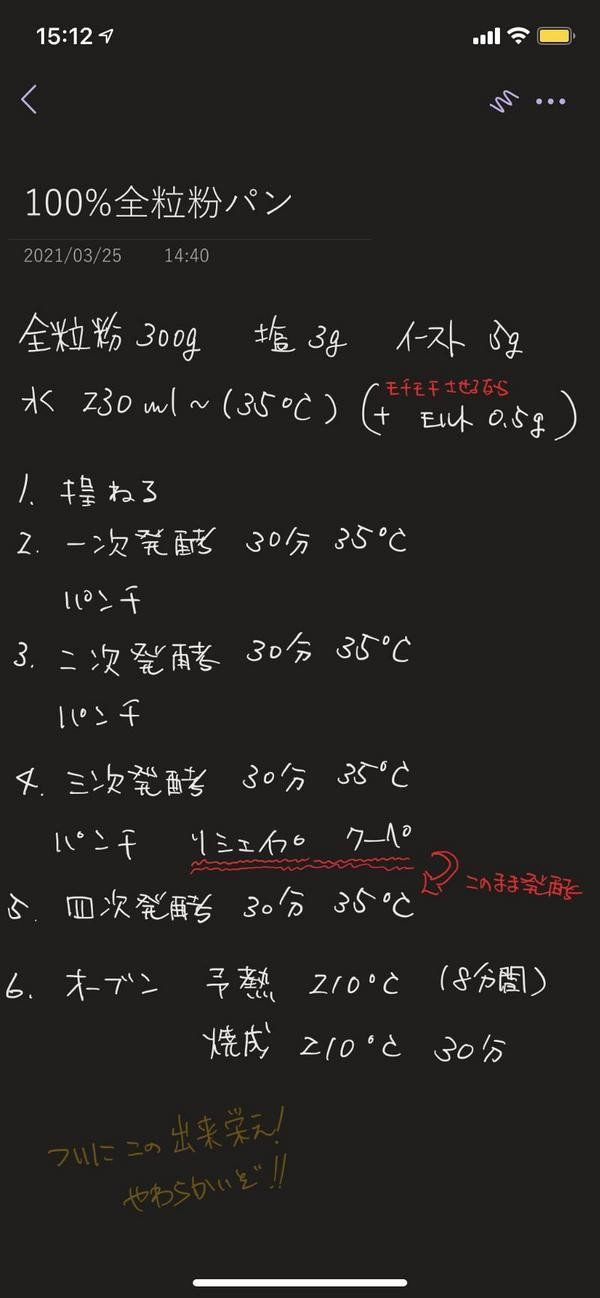 15:12
100%全粒粉パン
2021/03/25 14:40
全粒粉 300g 塩 3g イースト 5g
モチモチさせるなら
水 230ml~(35°C) (+ モルト 0.5g)
1. 捏ねる
2. 一次発酵 30分 35°C
パンチ
3. 二次発酵 30分 35°C
パンチ
4. 三次発酵 30分 35°C
パンチ リシェイプ クープ
このまま発酵
5. 四次発酵 30分 35°C
6. オーブン 予熱 210°C (8分間)
焼成 210°C 30分
ついにこの出来栄え!
やわらかいぞ!!